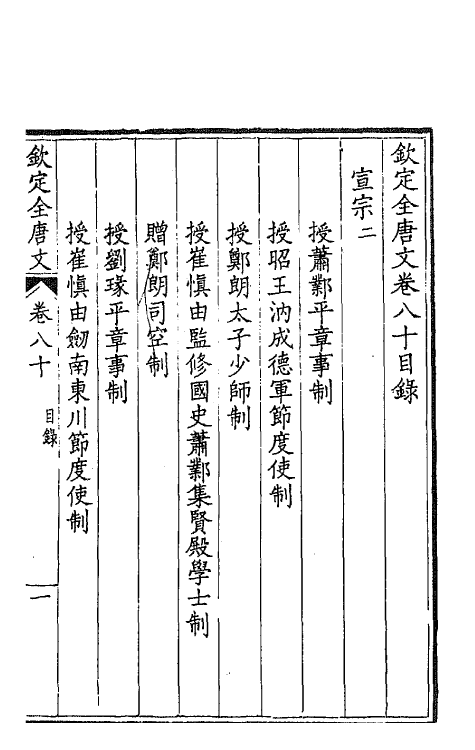 欽定全唐文卷八十目錄
宣宗二
授蕭鄴平章事制
授昭王汭成德軍節度使制
授鄭朗太子少師制
授崔慎由監修國史蕭鄴集賢殿學士制
贈鄭朗司空制
授劉瑑平章事制
授崔慎由劒南東川節度使制
欽定全唐文 卷八十 目錄 一